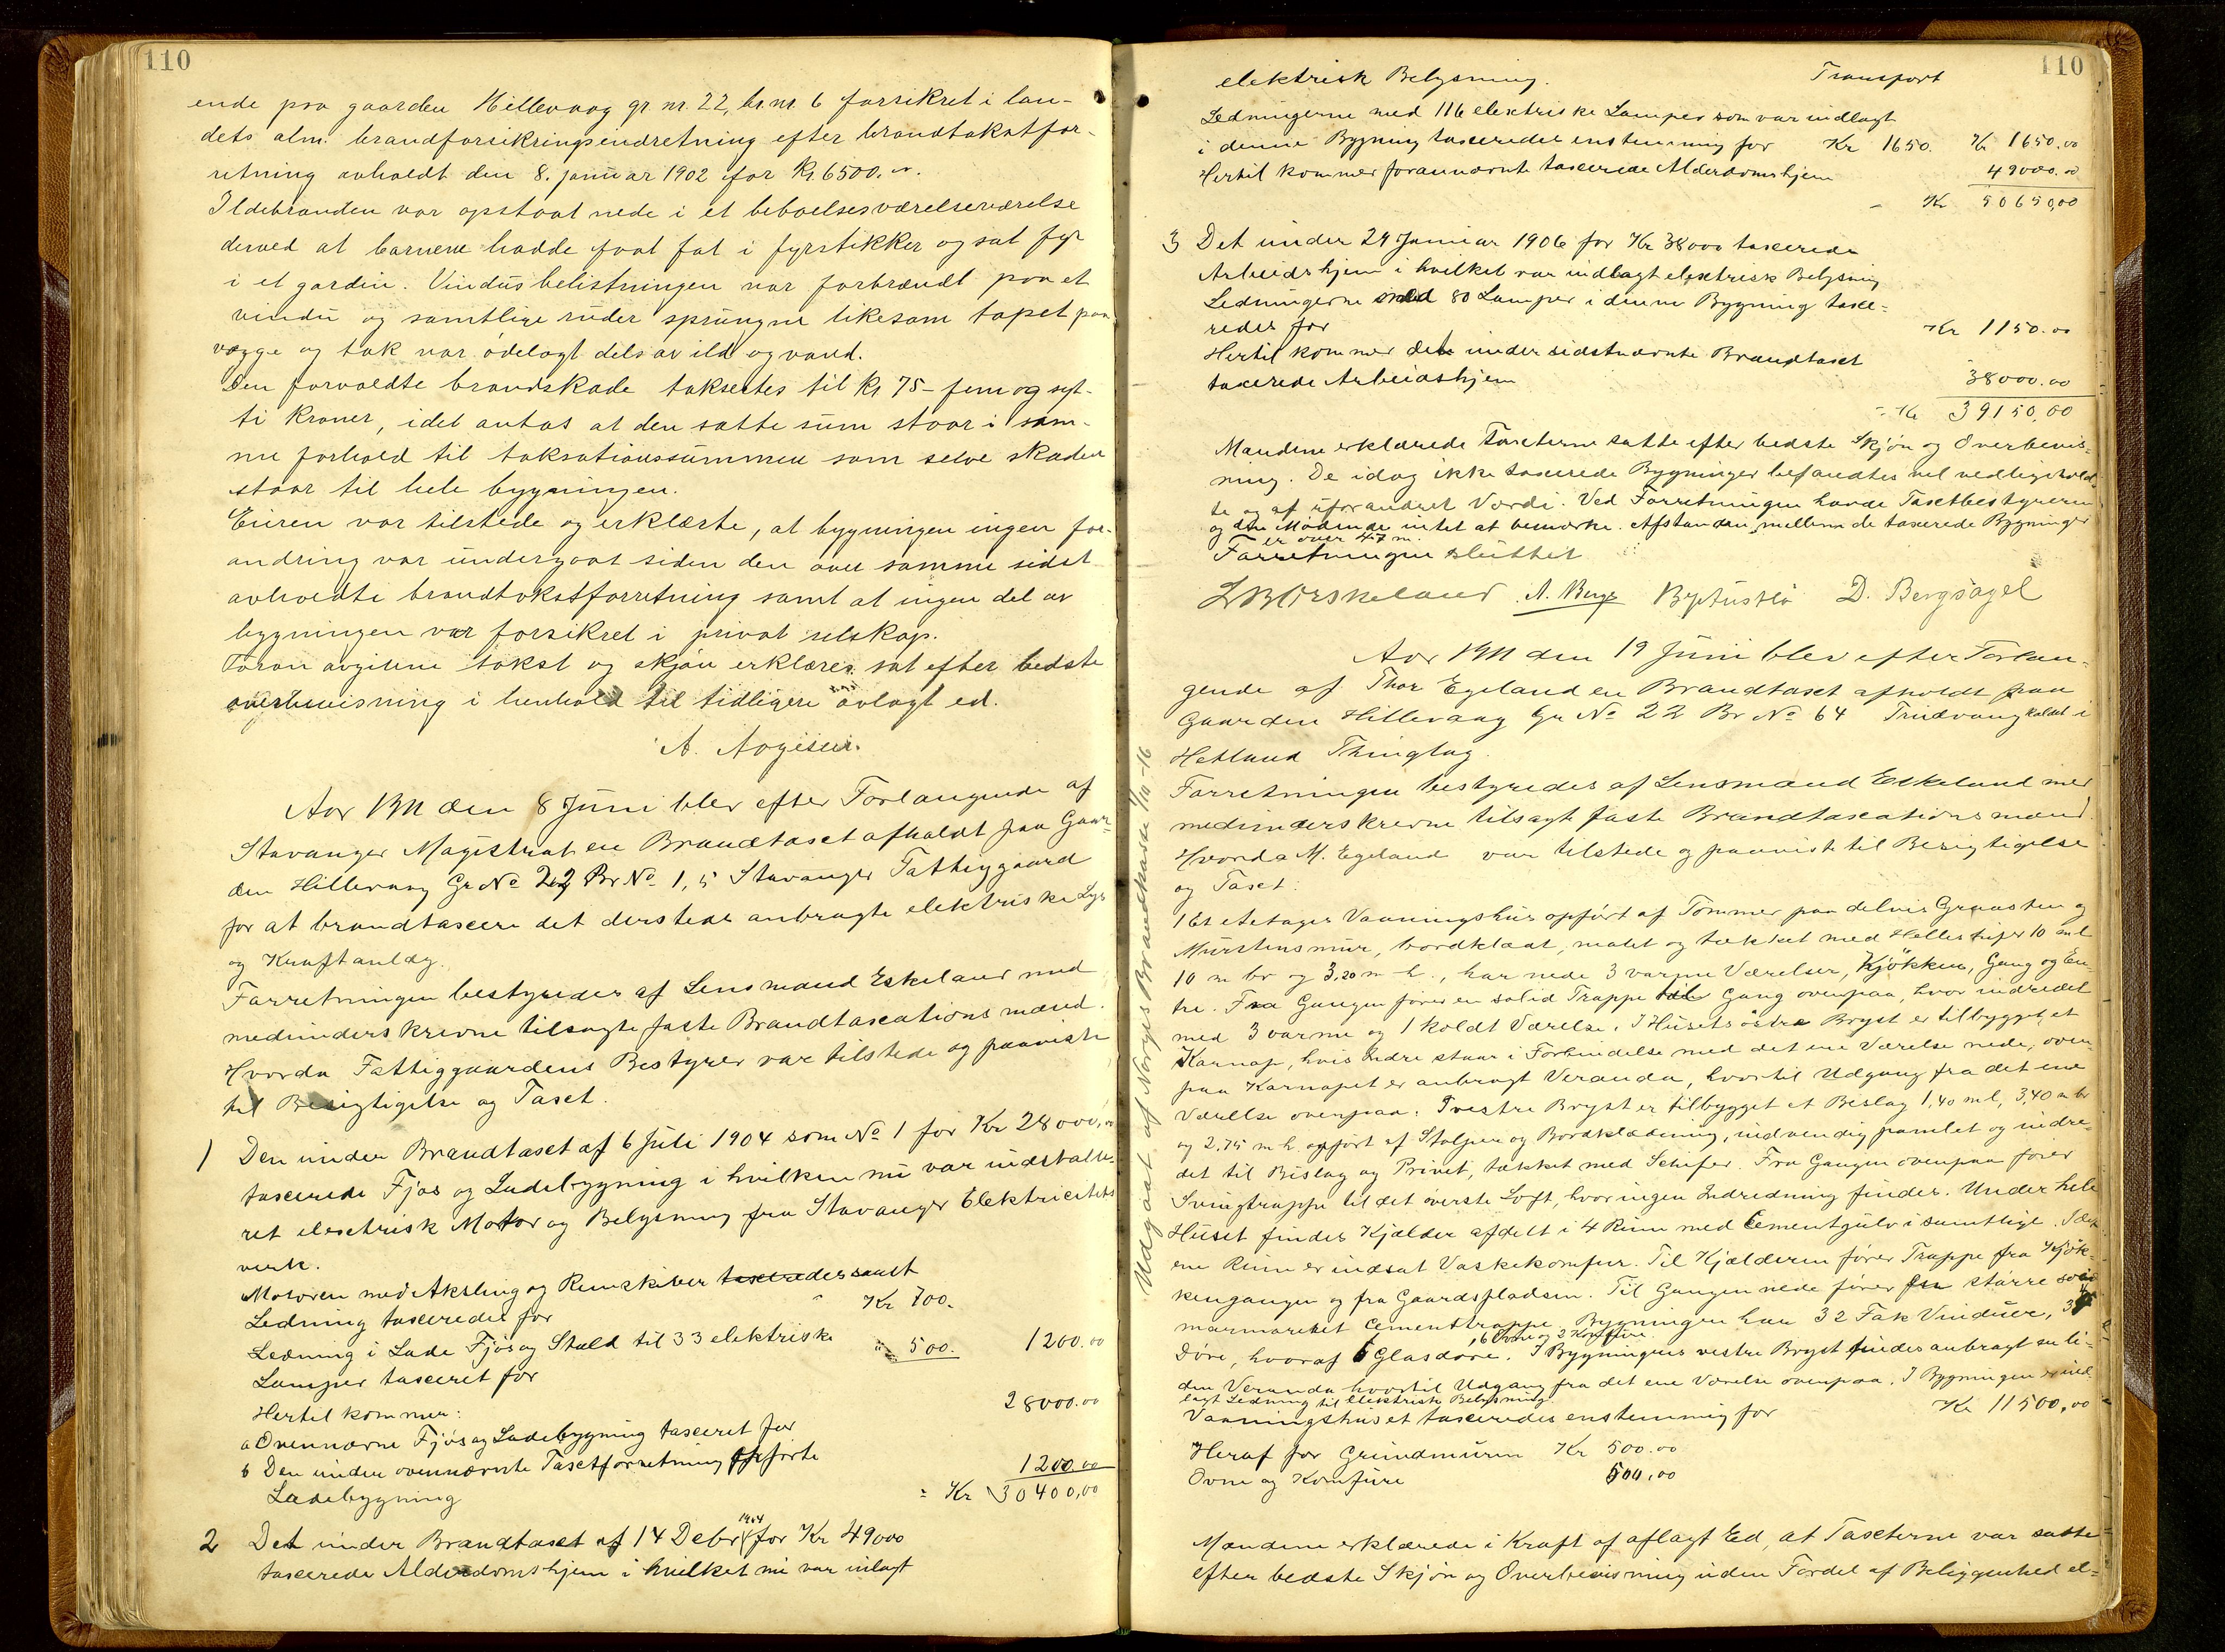 110
ende paa gaarden Hillevaag gr. nr. 22, br. nr. 6 forsikret i lan-
dets alm. brandforsikringsindretning efter brandtakstfor-
retning avholdt den 8. januar 1902 for Kr. 6500.
Ildebranden var opstaat nede i et beboelsesværelseværelse
derved at barnene hadde faat fat i fyrstikker og sat fyr
i et gardin. Vindusbelistningen var forbrændt paa et
vindu og samtlige ruder sprungne likesom tapet paa
vægge og tak var ödelagt dels av ild og vand.
Den forvoldte brandskade taksertes til Kr 75 - fem og syt-
ti kroner, idet antas at den satte sum staar i sam-
me forhold til taksationssummen som selve skaden
staar til hele bygningen.
Eieren var tilstede og erklærte, at bygningen ingen for-
andring var undergaat siden den over samme sidst
avholdte brandtakstforretning samt at ingen del av
bygningen var forsikret i privat selskap.
Foran avgivne takst og skjön erklæres sat efter bedste
overbevisning i henhold til tidligere avlagt ed.
Aar 1911 den 8 Juni blev efter Forlangende af
Stavanger Magistrat en Brandtaxt afholdt paa Gaar-
den Hillevaag Gr No 22 Br No 1,5 Stavanger Fattiggaard
for at brandtaxere det dersteds anbragte elektriske Lys
og Kraftanlæg.
Forretningen bestyredes af Lensmand Eskeland med
medunderskrevne tilsagte faste Brandtaxationsmænd.
Hvorda Fattiggaardens Bestyrer var tilstede og paaviste
til Besigtigelse og Taxt.
1 Den under Brandtaxt af 6 Juli 1904 som No 1 for Kr 28000,00
taxerede Fjøs og Ladebygning i hvilken nu var indstalle-
ret elextrisk Motor og Belysning fra Stavanger Elektricitets
verk.
Motoren med Aksling og Remskiver taxeredes samt
Ledning taxeredes for Kr 700.
Ledning i Lade Fjøs og Stald til 33 elektriske
Lamper taxeret for 500. 1200.00
Hertil kommer:
a Ovennævne Fjøs og Ladebygning taxeret for 28000.00
b Den under ovennævnte Taxtforretning opførte
Ladebygning 1200.00
= Kr 30400,00
2 Det under Brandtaxt af 14 Debr 1904 for Kr 49000
taxerede Alderdomshjem i hvilket nu var inlagt
110
elektrisk Belysning. Transport
Ledningerne med 116 elextriske Lamper som var indlagt
i denne Bygning taxeredes enstemmig for Kr 1650. Kr 1650.00
Hertil kommer forannævnte taxerede Alderdomshjem 49000.00
Kr 50650,00
3 Det under 29 Januar 1906 for Kr 38000 taxerede
Arbeidshjem i hvilket var indlagt elextrisk Belysning
Ledningerne med 80 Lamper i denne Bygning taxe-
redes for Kr 1150.00
Hertil kommer det under sidstnævnte Brandtaxt
taxerede Arbeidshjem 38000.00
= Kr 39150,00
Mændene erklærede Taxterne satte efter bedste Skjøn og Overbevis-
ning. De idag ikke taxerede Bygninger befandtes vel vedligehold-
te og af uforandret Værdi. Ved Forretningen havde Taxtbestyreren
og de Mødende intet at bemærke. Afstanden mellem de taxerede Bygninger
er over 47 m.
Forretningen sluttet
A. Berge D. Bergsagel
Aar 1911 den 19 Juni blev efter Forlan-
gende af Thor Egeland en Brandtaxt afholdt paa
Gaarden Hillevaag Gr No 22 Br No 64 Trudvang kaldet i
Hetland Thinglag.
Forretningen bestyredes af Lensmand Eskeland med
medunderskrevne tilsagte faste Brandtaxationsmænd.
Hvorda M. Egeland var tilstede og paaviste til Besigtigelse
og Taxt:
1 Et etetages Vaaningshus opført af Tømmer paa delvis Graasten og
Murstensmur, bordklædt, malet og tækket med Helleskifer 10 m l
10 m br og 3,20 m h., har nede 3 varme Værelser, Kjøkken, Gang og En-
tre. Fra Gangen fører en solid Trappe til Gang ovenpaa, hvor indredet
med 3 varme og 1 koldt Værelse. I Husets östre Bryst er tilbygget et
Karnap, hvis Indre staar i Forbindelse med det ene Værelse nede, oven-
paa Karnapet er anbragt Veranda, hvortil Udgang fra det ene
Værelse ovenpaa. I vestre Bryst er tilbygget et Beslag 1,40 m l, 3,40 m br
og 2,75 m h opført af Stolper og Bordklædning, indvendig panelet og indre-
det til Bislag og Privet, tækket med Schifer. Fra Gangen ovenpaa fører
Svingtrappe til det øverste Loft, hvor ingen Indredning findes. Under hele
Huset findes Kjælder afdelt i 4 Rum med Cementgulv i samtlige. I det
ene Rum er indsat Vaskekomfur. Til Kjælderen fører Trappe fra Kjøk-
kengangen og fra Gaardspladsen. Til Gangen nede fører større
Cementtrappe. Bygningen har 32 Fak Vinduer,
Døre, hvoraf 6 Glasdøre, 6 Ovne og 2 Komfure. I Bygningens vestre Bryst findes anbragt en li-
den Veranda hvortil Udgang fra det ene Værelse ovenpaa. I Bygningen er ind-
lagt Ledning til elektrisk Belysning.
Vaaningshuset taxeredes enstemmig for Kr 11500,00
Heraf for Grundmuren Kr 500.00
Ovne og Komfure 500,00
Mændene erklærede i Kraft af aflagt Ed, at Taxterne var satte
efter bedste Skjøn og Overbevisning uden Fordel af Beliggenhed el-
Udgaat af Norges Brandkasse